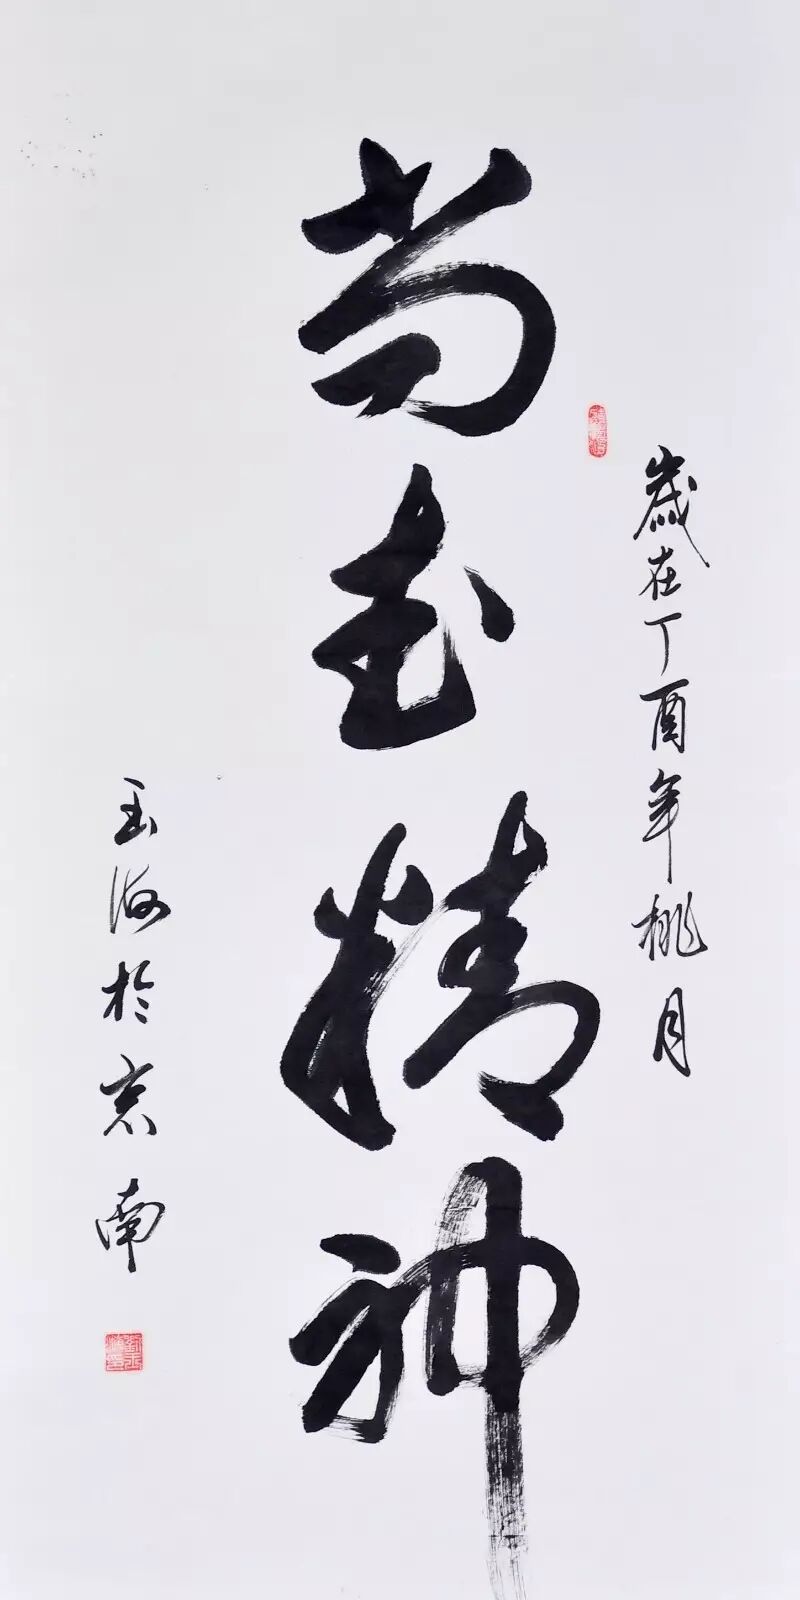 歲在丁酉年桃月
尚武精神
玉海於京南